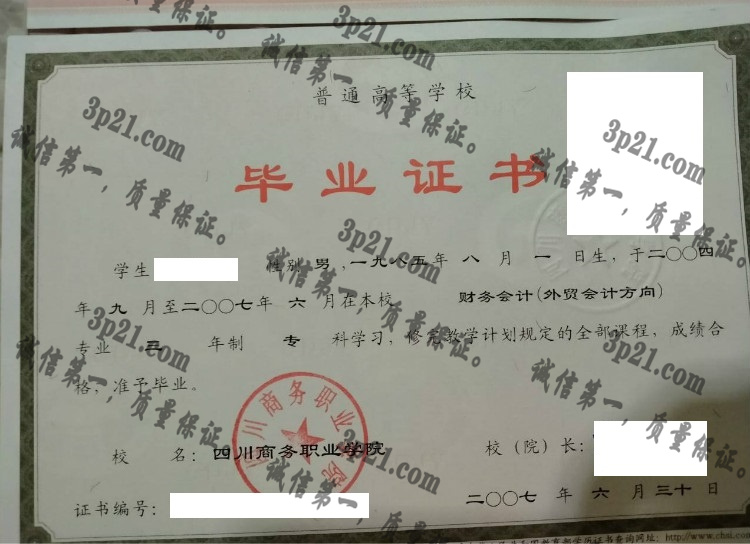 普通高等学校
毕业证书
学生 性别 男 ,一九八五年 八 月 一 日生, 于二〇〇四
年 九 月至二〇〇七年 六 月在本校 财务会计(外贸会计方向)
专业 三 年制 专 科学习, 修完教学计划规定的全部课程, 成绩合
格, 准予毕业。
校 名: 四川商务职业学院
校(院)长:
证书编号:
二〇〇七 年 六 月三十日
四川商务职业学院
查询网址: http://www.chsi.com
3p21.com
诚信第一, 质量保证。
3p21.com
诚信第一, 质量保证。
3p21.com
诚信第一, 质量保证。
3p21.com
诚信第一, 质量保证。
3p21.com
诚信第一, 质量保证。
3p21.com
诚信第一, 质量保证。
3p21.com
诚信第一, 质量保证。